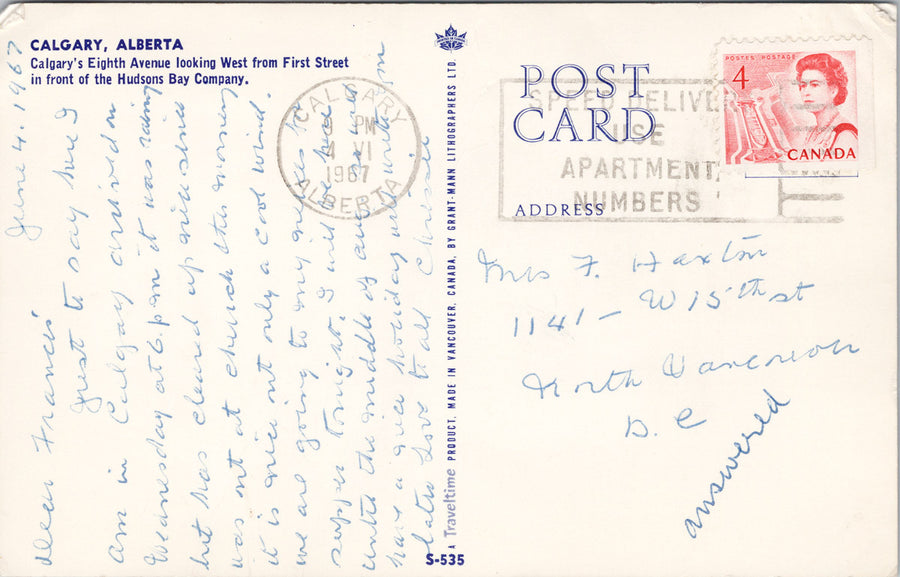 CALGARY, ALBERTA
Calgary's Eighth Avenue looking West from First Street
in front of the Hudsons Bay Company.
June 4. 1967
Dear Francis
Just to say here I
am in Calgary arrived on
Wednesday at 6. pm it was raining
but has cleared up since
was out at church this morning
it is nice out only a cool wind.
we are going to my nieces for
supper tonight. I will be here
until the middle of
have a nice holiday write
later Love to all Chrissie
CALGARY
PM
4 VI
1967
ALBERTA
A Traveltime PRODUCT. MADE IN VANCOUVER, CANADA, BY GRANT-MANN LITHOGRAPHERS LTD.
S-535
POST
CARD
ADDRESS
SPEED DELIVE
USE
APARTMENT
NUMBERS
POSTES POSTAGE
4
CANADA
Mrs F. Haxton
1141 - W 15th st
North Vancouver
B. C
answered